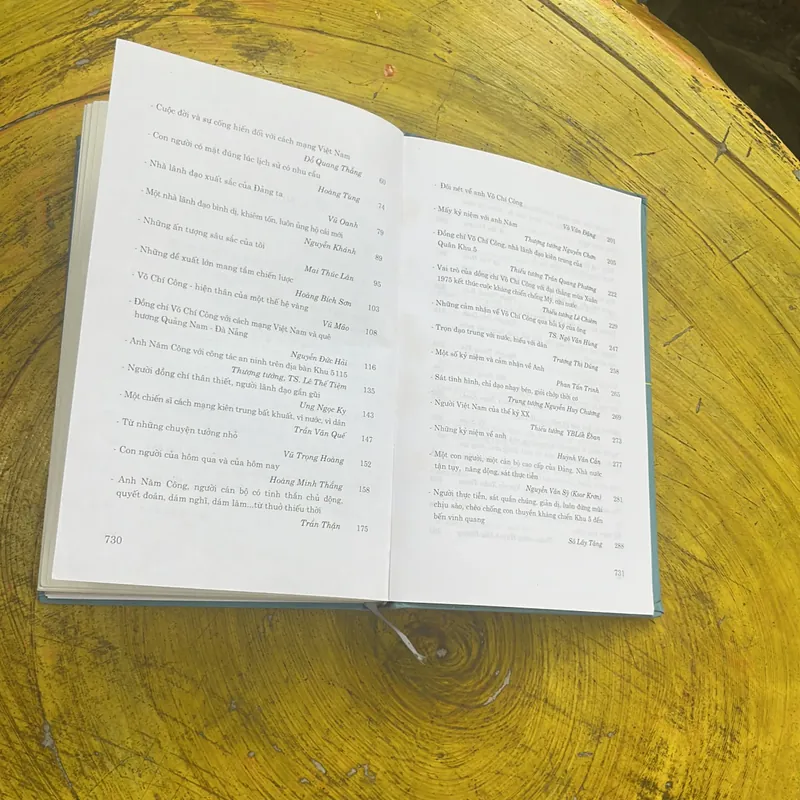 - Cuộc đời và sự cống hiến đối với cách mạng Việt Nam
Đỗ Quang Thắng 60
- Con người có mặt đúng lúc lịch sử có nhu cầu
Hoàng Tùng 74
- Nhà lãnh đạo xuất sắc của Đảng ta
Vũ Oanh 79
- Một nhà lãnh đạo bình dị, khiêm tốn, luôn ủng hộ cái mới
Nguyễn Khánh 89
- Những ấn tượng sâu sắc của tôi
Mai Thúc Lân 95
- Những đề xuất lớn mang tầm chiến lược
Hoàng Bích Sơn 103
- Võ Chí Công - hiện thân của một thế hệ vàng
Vũ Mão 108
- Đồng chí Võ Chí Công với cách mạng Việt Nam và quê
hương Quảng Nam - Đà Nẵng
Nguyễn Đức Hải 116
- Anh Năm Công với công tác an ninh trên địa bàn Khu 5 115
Thượng tướng, TS. Lê Thế Tiệm 135
- Người đồng chí thân thiết, người lãnh đạo gần gũi
Ung Ngọc Ky 143
- Một chiến sĩ cách mạng kiên trung bất khuất, vì nước, vì dân
Trần Văn Quế 147
- Từ những chuyện tưởng nhỏ
Vũ Trọng Hoàng 152
- Con người của hôm qua và của hôm nay
Hoàng Minh Thắng 158
- Anh Năm Công, người cán bộ có tinh thần chủ động,
quyết đoán, dám nghĩ, dám làm...từ thuở thiếu thời
Trần Thận 175
730
- Đôi nét về anh Võ Chí Công
Vũ Văn Đặng 201
- Mấy kỷ niệm với anh Năm
Thượng tướng Nguyễn Chơn 205
- Đồng chí Võ Chí Công, nhà lãnh đạo kiên trung của
Quân Khu 5
Thiếu tướng Trần Quang Phương 222
- Vai trò của đồng chí Võ Chí Công với đại thắng mùa Xuân
1975 kết thúc cuộc kháng chiến chống Mỹ, cứu nước
Thiếu tướng Lê Chiêm 229
- Những cảm nhận về Võ Chí Công qua hồi ký của ông
TS. Ngô Văn Hùng 247
- Trọn đạo trung với nước, hiếu với dân
Trương Thị Dũng 258
- Một số kỷ niệm và cảm nhận về Anh
Phan Tấn Trình 265
- Sát tình hình, chỉ đạo nhạy bén, giỏi chớp thời cơ
Trung tướng Nguyễn Huy Chương 269
- Người Việt Nam của thế kỷ XX
Thiếu tướng YBLốk Êban 273
- Những kỷ niệm về anh
Huỳnh Văn Cần 277
- Một con người, một cán bộ cao cấp của Đảng, Nhà nước
tận tụy, năng động, sát thực tiễn
Nguyễn Văn Sỹ (Ksor Krơn) 281
- Người thực tiễn, sát quần chúng, giản dị, luôn đứng mũi
chịu sào, chèo chống con thuyền kháng chiến Khu 5 đến
bến vinh quang
Sô Lây Tăng 288
731